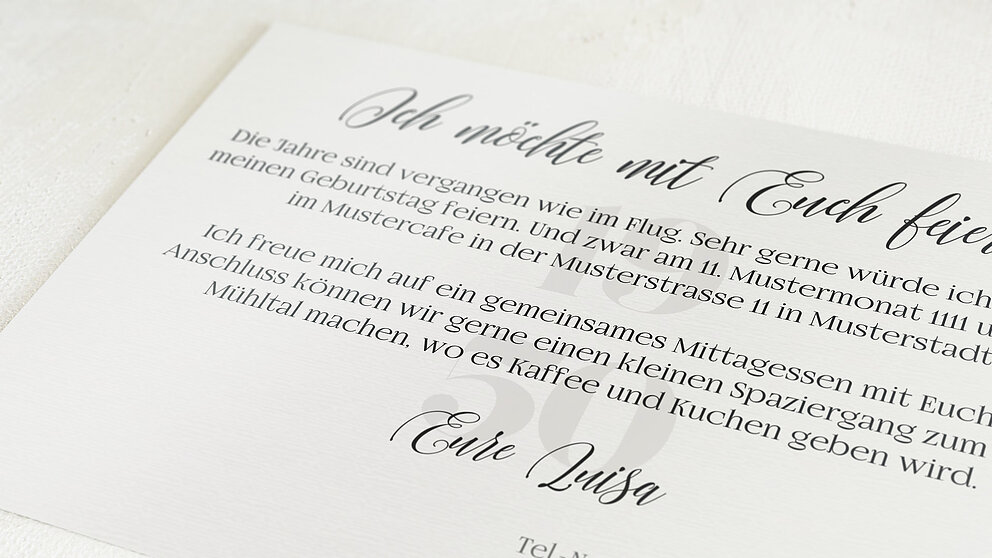 Ich möchte mit Euch
Die Jahre sind vergangen wie im Flug. Sehr gerne würde ich
meinen Geburtstag feiern. Und zwar am 11. Mustermonat 1111
im Mustercafe in der Musterstrasse 11 in Musterstadt
Ich freue mich auf ein gemeinsames Mittagessen mit Euch
Anschluss können wir gerne einen kleinen Spaziergang zum
Mühltal machen, wo es Kaffee und Kuchen geben wird.
19
50
Eure Luisa